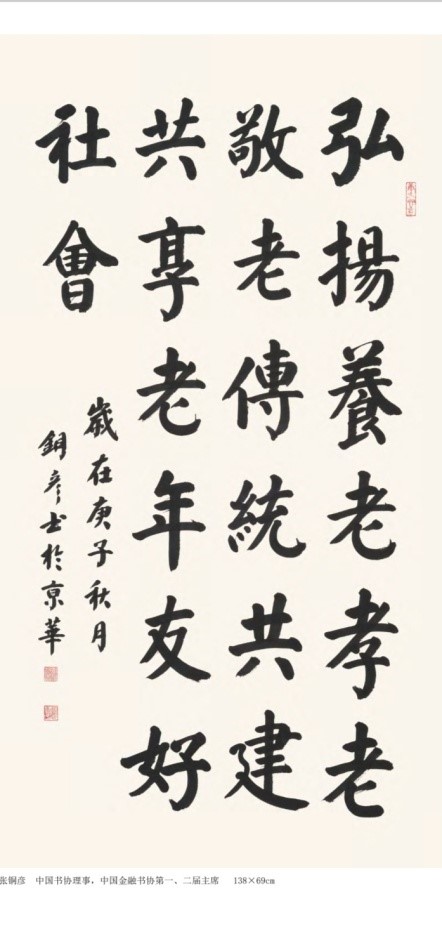 弘揚養老孝老
敬老傳統共建
共享老年友好
社會
歲在庚子秋月
銅彦书於京華
张铜彦 中国书协理事，中国金融书协第一、二届主席 138×69cm